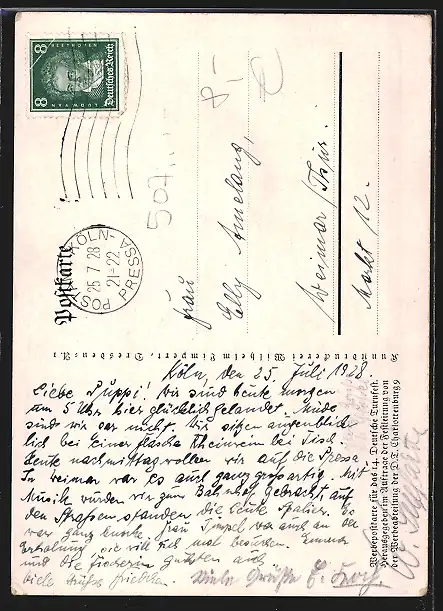 Köln, den 25. Juli 1928.
Liebe Puppi! Wir sind heute morgen
um 5 Uhr hier glücklich gelandet. Müde
sind wir gar nicht. Wir sitzen augenblick
lich bei einer Flasche Rheinwein bei Tisch.
Heute nachmittag wollen wir auf die Pressa
In Weimar war es auch ganz großartig. Mit
Musik wurden wir zum Bahnhof gebracht, auf
den Straßen standen die Leute Spalier. Es
war ganz
Frau auch an der
Erholung sie will sich mal besuchen.
und die
viele Viele Grüße E.
Postkarte
KÖLN-
PRESSA
25 7 28
21-22
POS
8
LUDW. VAN
BEETHOVEN
Deutsches Reich
8
8,-
507
Frau
Elly Amelang,
Weimar/Thür.
Markt 12.
Kunstdruckerei Wilhelm Limpert, Dresden-A. 1
Werbepostkarte für das 14. Deutsche Turnfest.
Herausgegeben im Auftrage der Festleitung von
der Werbeabteilung der D.T. Charlottenburg 9